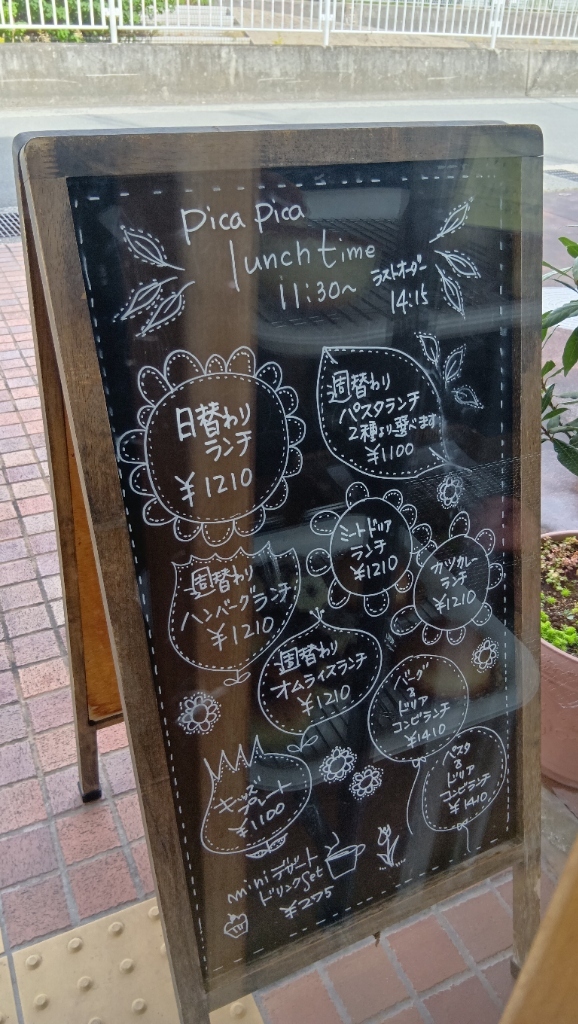 Pica Pica
lunch time
11:30~
ラストオーダー
14:15
日替わり
ランチ
¥1210
週替わり
パスタランチ
2種より選べます
¥1100
ミートドリア
ランチ
¥1210
カツカレー
ランチ
¥1210
週替わり
ハンバーグランチ
¥1210
週替わり
オムライスランチ
¥1210
バーグ
&
ドリア
コンビランチ
¥1410
パスタ
&
ドリア
コンビランチ
¥1410
キッズ
プレート
¥1100
miniデザート
ドリンクset
¥275